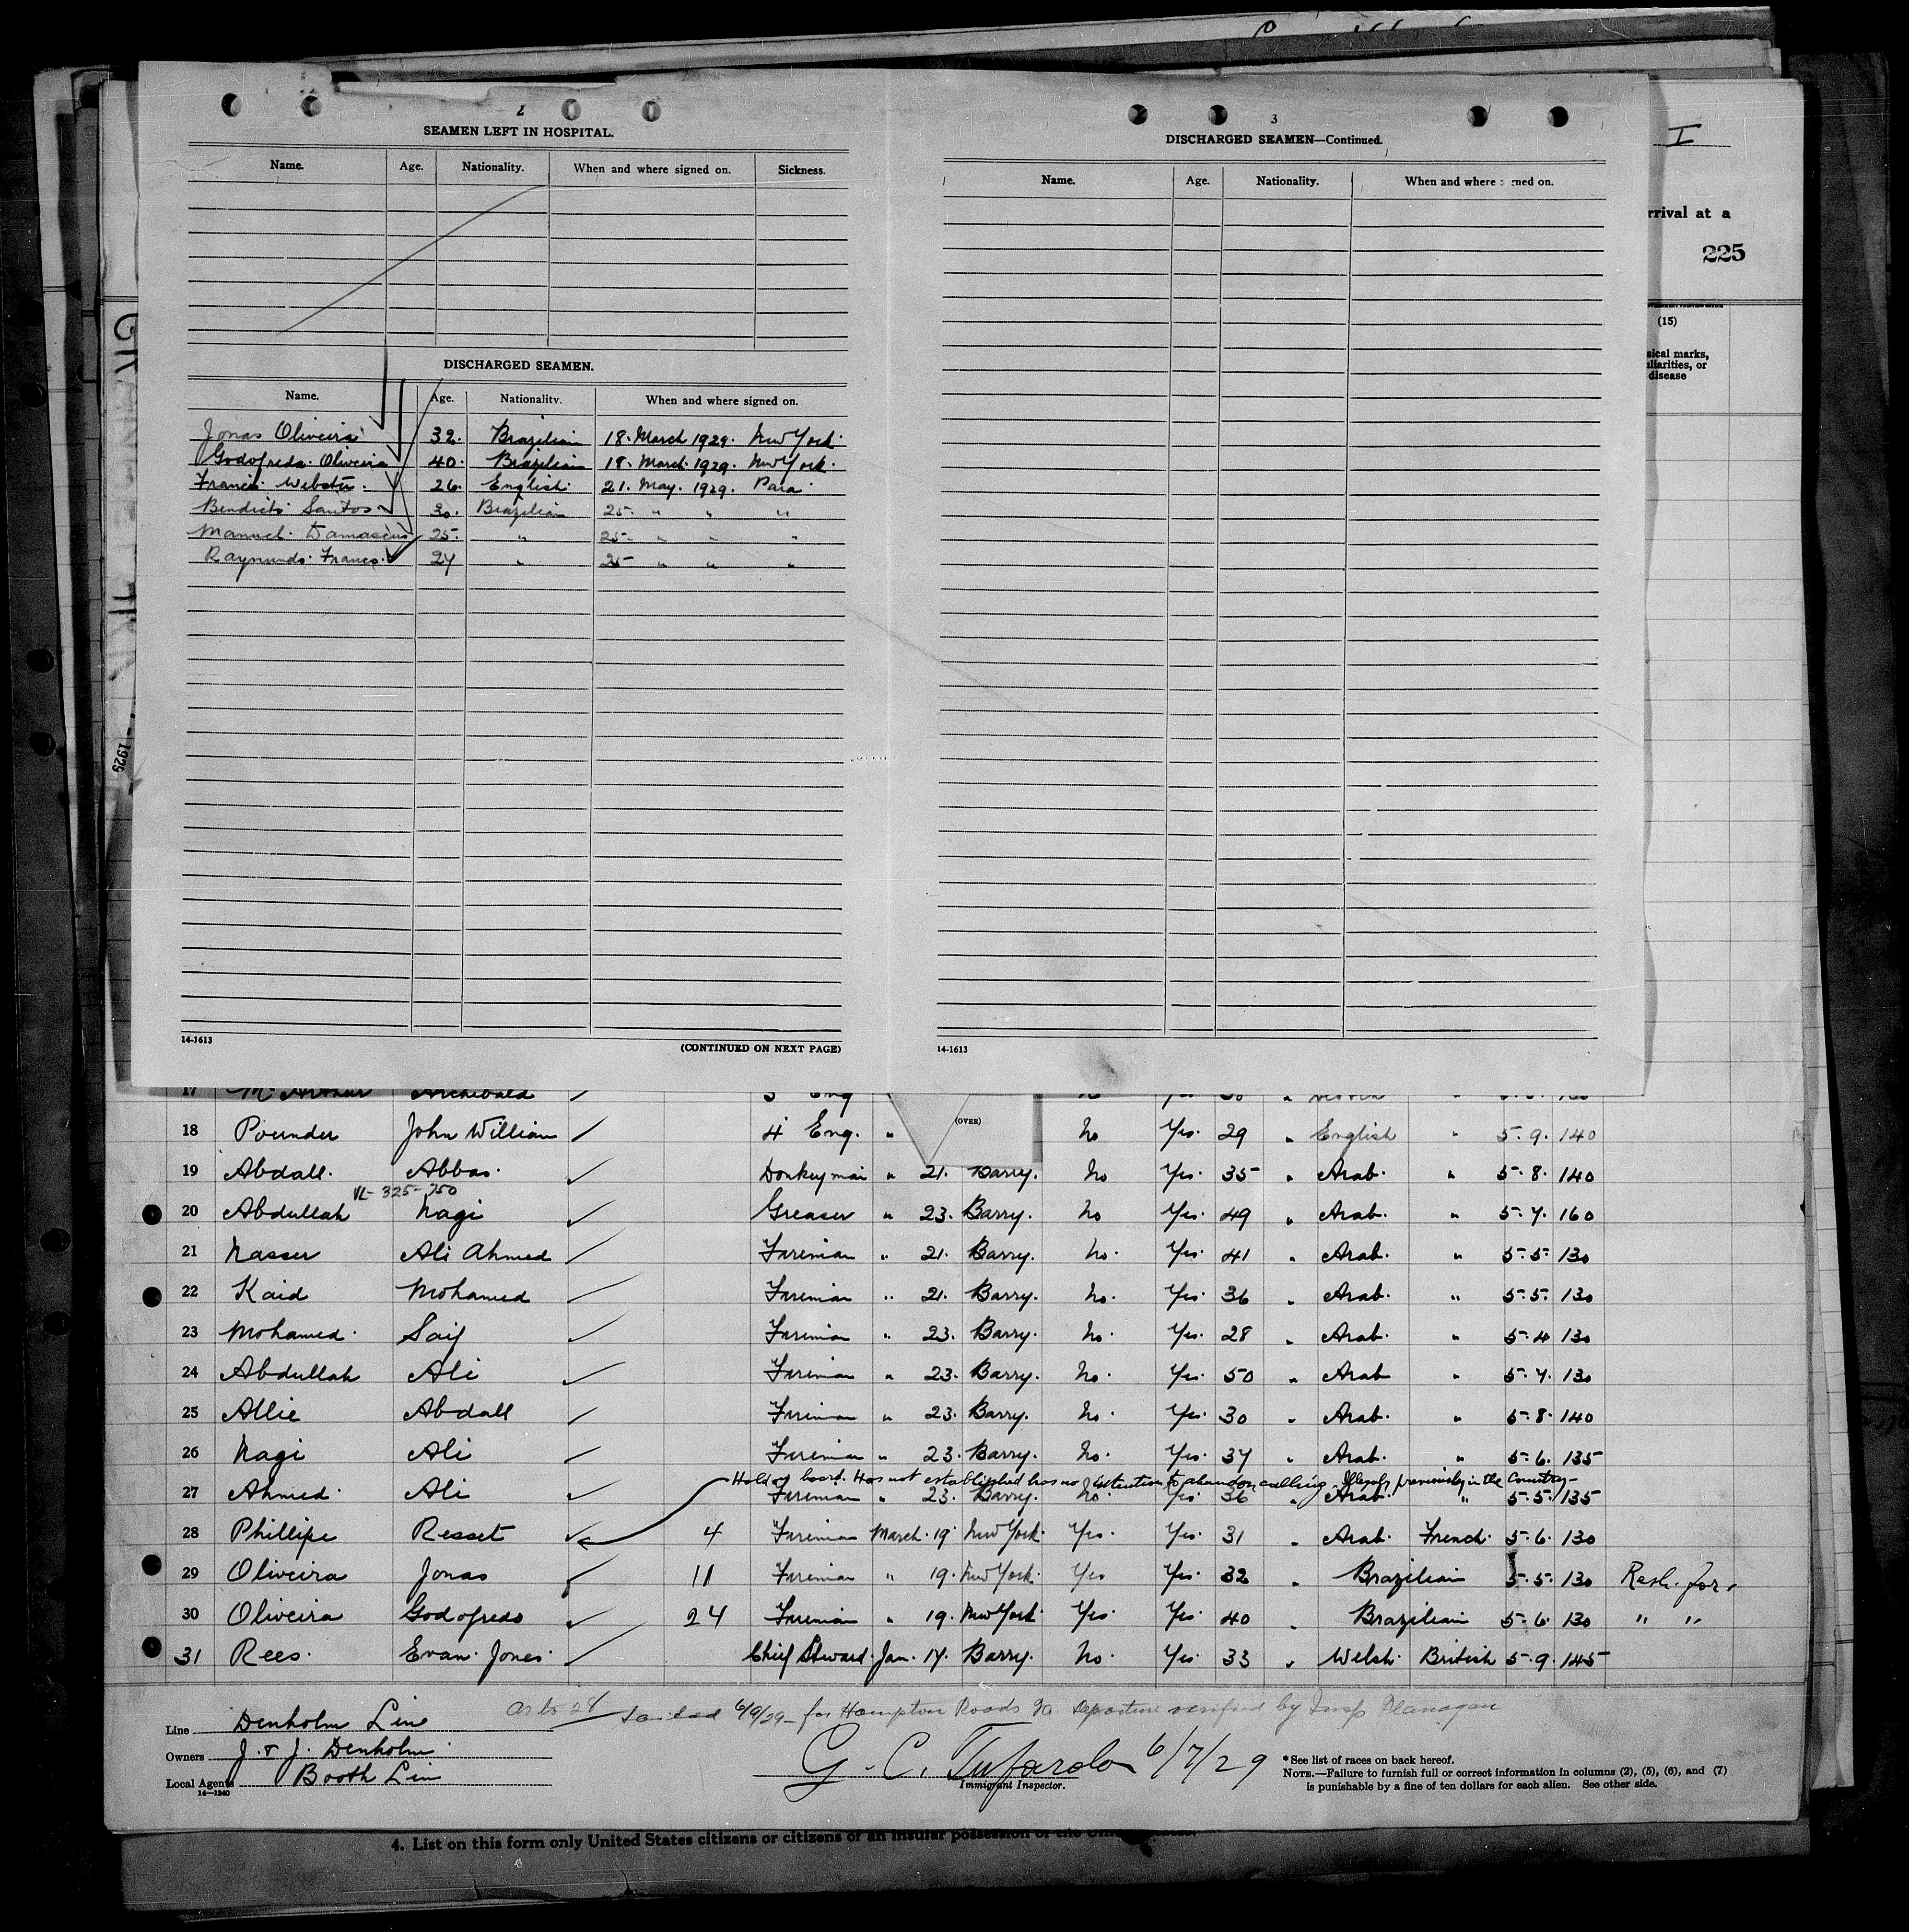 2
SEAMEN LEFT IN HOSPITAL.
Name. Age. Nationality. When and where signed on. Sickness.
DISCHARGED SEAMEN.
Name. Age. Nationality. When and where signed on.
Jonas Oliveira 32. Brazilian 18. March 1929. New York.
Godofredo Oliveira 40. Brazilian 18. March 1929. New York.
Franci Webster. 26. English 21. May. 1929. Para
Bendicto Santos 30. Brazilian 25. " " "
Manuel Damascus 25. " 25. " " "
Raymundo Franco 24 " 25 " " "
14-1613
(CONTINUED ON NEXT PAGE)
3
DISCHARGED SEAMEN—Continued.
Name. Age. Nationality. When and where ned on.
14-1613
I
rrival at a
225
(15)
sical marks,
uliarities, or
disease
1929
17 Mc Arthur Archibald 3 Eng
(OVER)
18 Pounder John William 4 Eng. " No Yes. 29 " English " 5. 9. 140
19 Abdall. Abbas. Donkeyman " 21. Barry. No Yes. 35 " Arab. " 5. 8. 140
VL-325-750
20 Abdullah Nagi Greaser " 23. Barry. No Yes. 49 " Arab. " 5. 7. 160
21 Nasser Ali Ahmed Fireman " 21. Barry. No. Yes. 41 " Arab. " 5. 5. 130
22 Kaid Mohamed Fireman " 21. Barry. No. Yes. 36 " Arab. " 5. 5. 130
23 Mohamed. Saif Fireman " 23. Barry. No. Yes. 28 " Arab. " 5. 4 130
24 Abdullah Ali Fireman " 23. Barry. No. Yes. 50 " Arab " 5. 7. 130
25 Allie Abdall Fireman " 23. Barry. No. Yes. 30 " Arab. " 5. 8. 140
26 Nagi Ali Fireman " 23. Barry. No. Yes. 37 " Arab. " 5. 6. 135
Hold on board. Has not established has no intention to abandon calling. Illegally previously in the Country-
27 Ahmed. Ali Fireman " 23. Barry. No. Yes 36 " Arab. " 5. 5. 135
28 Phillipe Resset 4 Fireman March. 19. New York. Yes. Yes. 31 " Arab. French. 5. 6. 130
29 Oliveira Jonas 11 Fireman " 19. New York. Yes Yes. 32 " Brazilian 5. 5. 130 Resh. for.
30 Oliveira Godofredo 24 Fireman " 19. New York. Yes. Yes. 40 " Brazilian 5. 6. 130 " "
31 Rees. Evan Jones. Chief Steward. Jan. 17. Barry. No. Yes. 33 " Welsh. British 5. 9. 145
As to 28 Sailed 6/9/29 - for Hampton Roads Va Departure verified by Insp Flanagan
Line Denholm Line
Owners J. & J. Denholm.
Local Agents Booth Line
14—1240
G. C. Tufarolo 6/7/29
Immigrant Inspector.
*See list of races on back hereof.
NOTE.—Failure to furnish full or correct information in columns (2), (5), (6), and (7)
is punishable by a fine of ten dollars for each alien. See other side.
4. List on this form only United States citizens or citizens of an insular possession of the